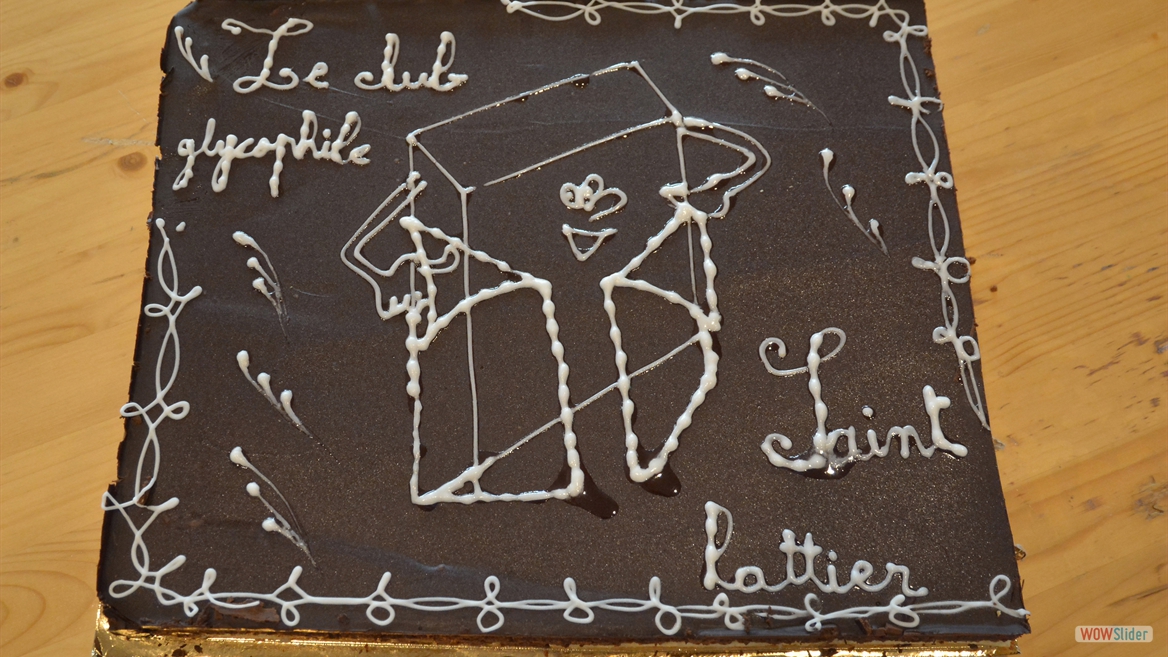 Le club
glycophile
Saint
lattier
WOWSlider